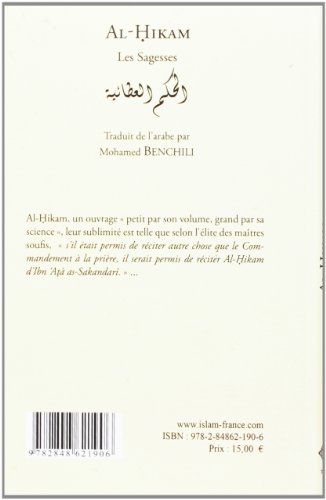 AL-ḤIKAM
Les Sagesses
الحكم العطائية
Traduit de l'arabe par
Mohamed BENCHILI
Al-Ḥikam, un ouvrage « petit par son volume, grand par sa
science », leur sublimité est telle que selon l'élite des maîtres
soufis, « s'il était permis de réciter autre chose que le Com-
mandement à la prière, il serait permis de réciter Al-Ḥikam
d'Ibn 'Aṭâ as-Sakandarî. » ...
www.islam-france.com
ISBN : 978-2-84862-190-6
Prix : 15,00 €
9 782848 621906